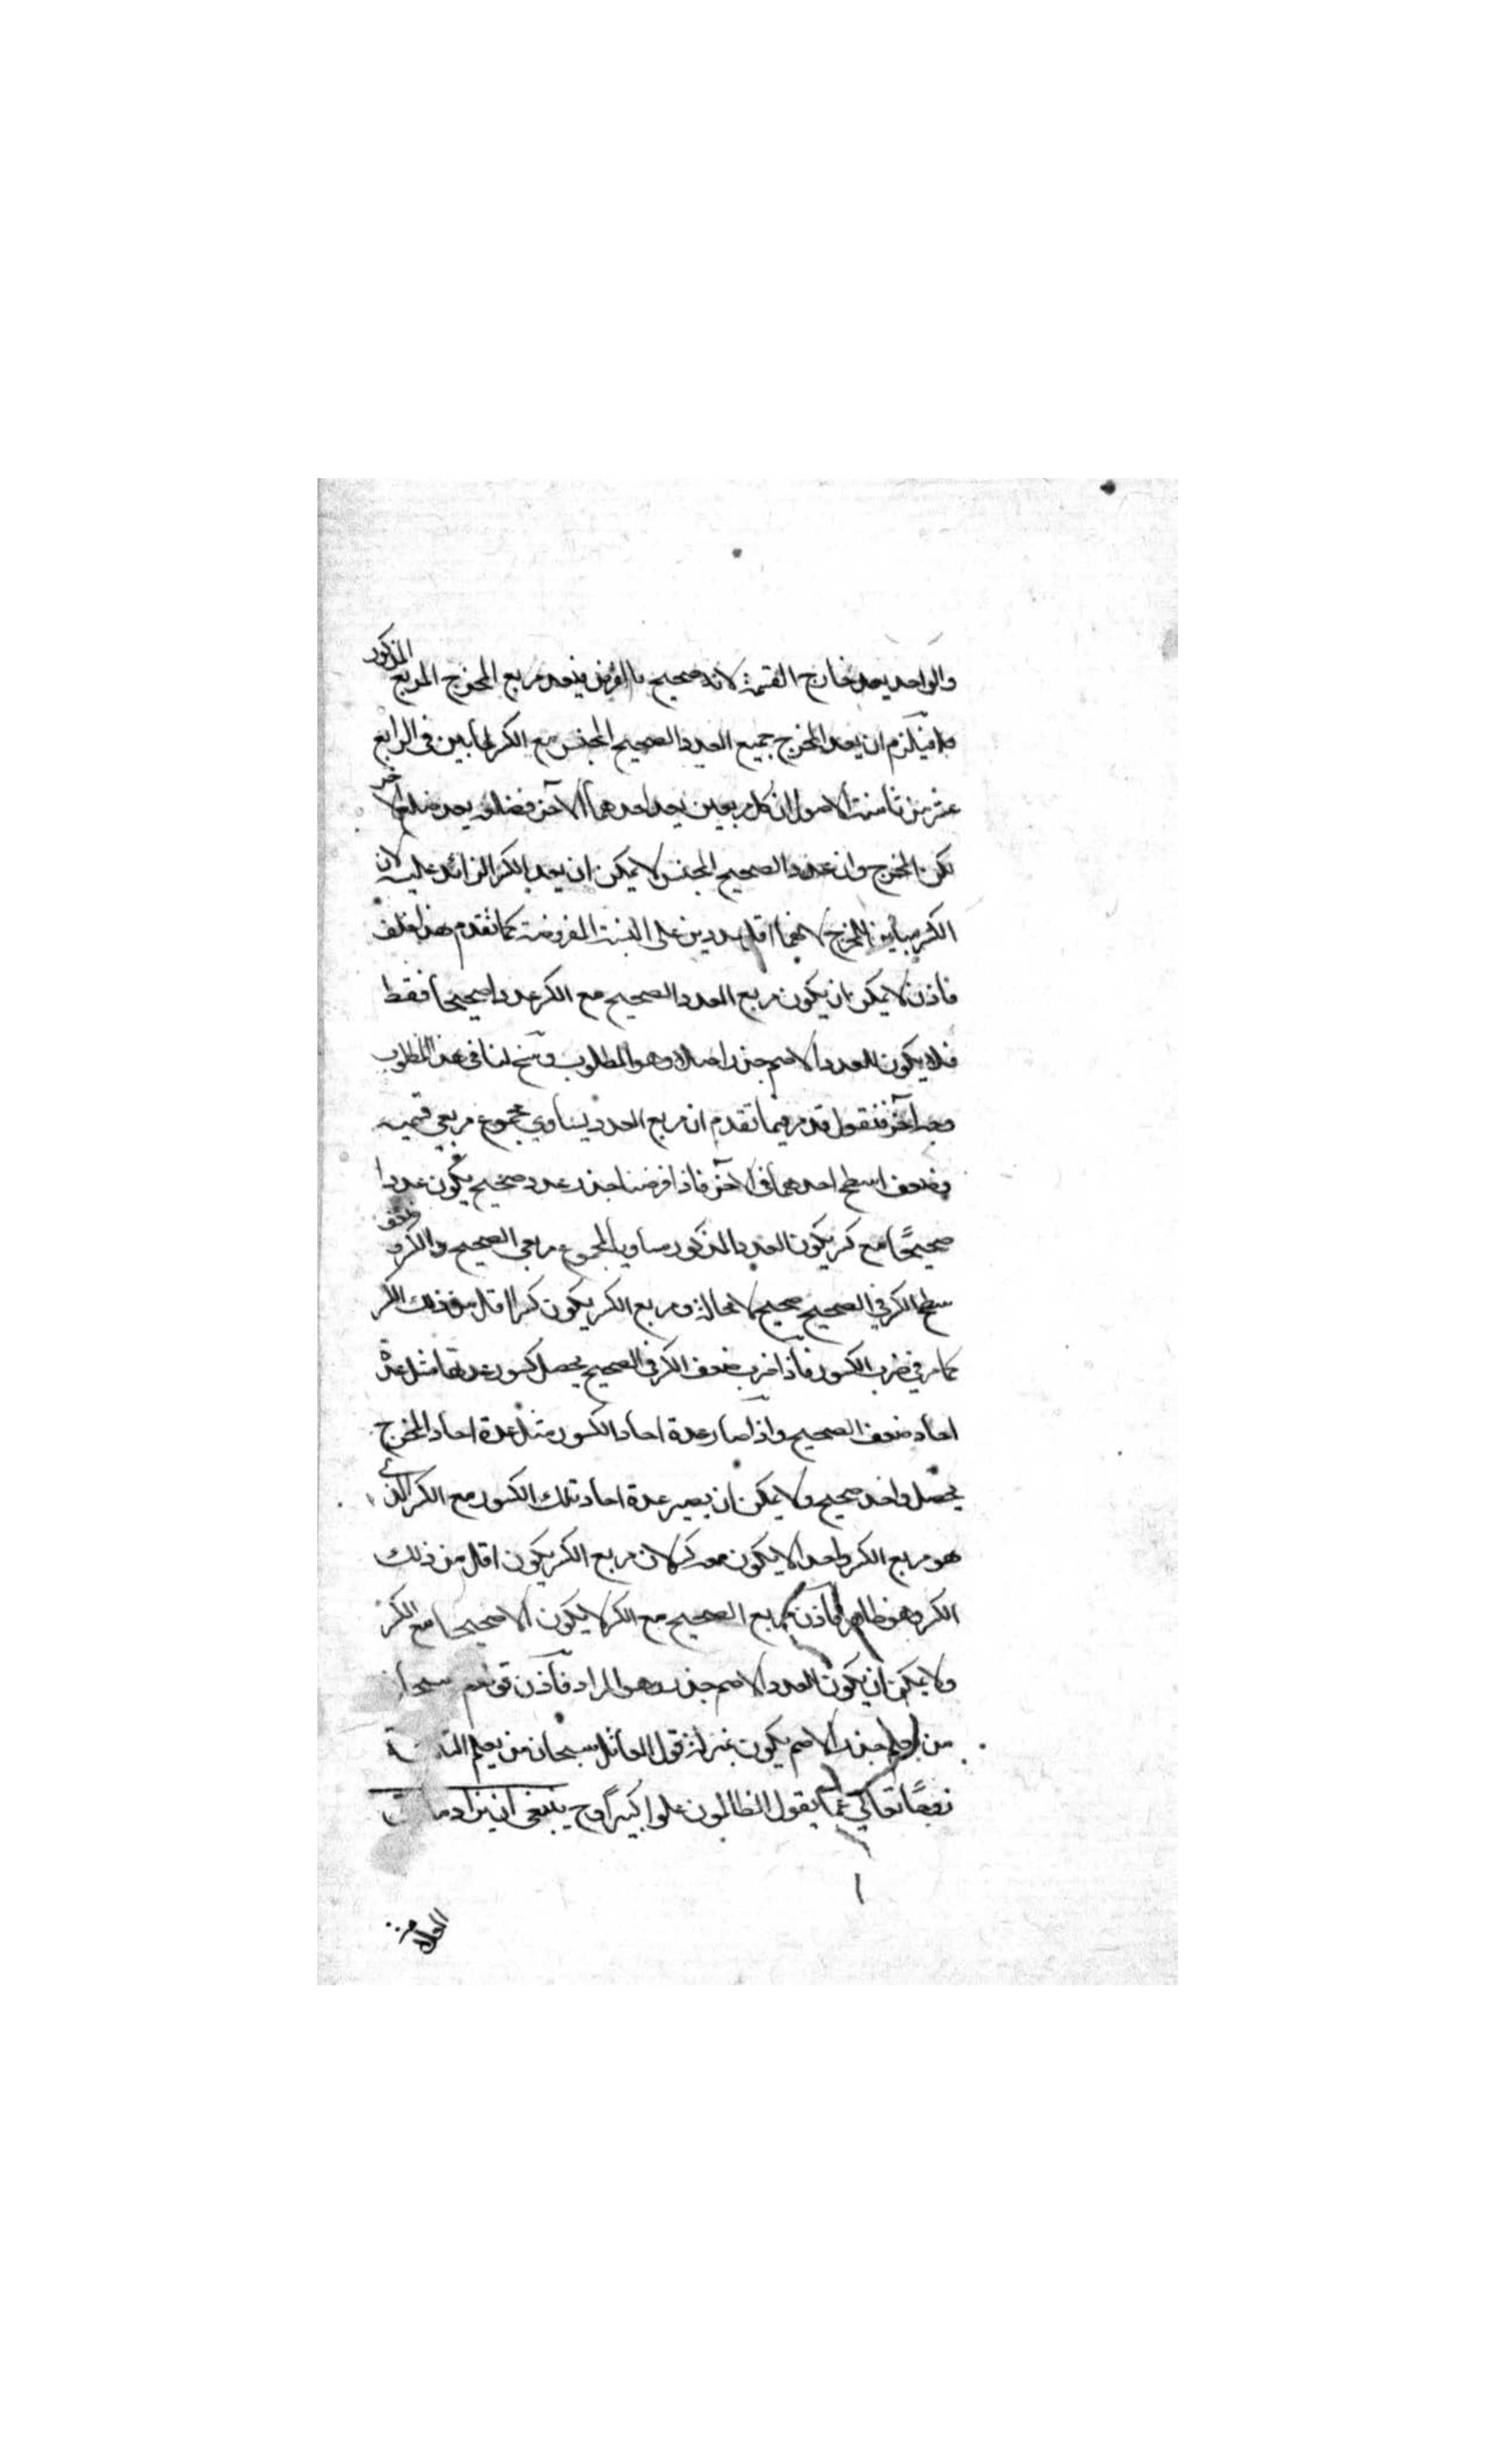 والواحد يعد خارج القسمة لانه صحيح بالفرض فيعد مربع المخرج المربع المذكور
فيلزم ان يعد المخرج جميع العدد الصحيح المجنس مع الكسر لما بين فى الرابع
عشر من ثامنة الاصول ان كل مربعين يعد احدهما الآخر فضلعه يعد ضلع الاخر
لكن المخرج وان عد الصحيح المجنس لا يمكن ان يعد الكسر الزائد عليه لان
الكسر يباين المخرج لانهما اقل عددين على النسبة المفروضة كما تقدم هذا خلف
فاذن لا يمكن ان يكون مربع العدد الصحيح مع الكسر عددا صحيحا فقط
فلا يكون للعدد الاصم جذر اصلا وهو المطلوب وسنح لنا فى هذا المطلوب
وجه آخر فنقول قد مر فيما تقدم ان مربع العدد يساوي مجموع مربعي قسميه
وضعف سطح احدهما فى الآخر فاذا فرضنا جذر عدد صحيح يكون عددا
صحيحًا مع كسر يكون العدد المذكور مساويا لمجموع مربعى الصحيح والكسر وضعف
سطح الكسر في الصحيح صحيح لا محالة ومربع الكسر يكون كسرا اقل من ذلك الكسر
كما مر في ضرب الكسور فاذا ضرب ضعف الكسر فى الصحيح يحصل كسور عدتها مثل عدة
احاد ضعف الصحيح واذا صار عدة احاد الكسور مثل عدة احاد المخرج
يحصل واحد صحيح ولا يمكن ان يصير عدة احاد تلك الكسور مع الكسر الذي
هو مربع الكسر واحدا لا يكون معه كسر لان مربع الكسر يكون اقل من ذلك
الكسر وهو ظاهر فاذن مربع الصحيح مع الكسر لا يكون الا صحيحا مع الكسر
ولا يمكن ان يكون للعدد الاصم جذر وهو المراد فاذن قولهم سبحان
من يعلم جذر الاصم يكون بمنزلة قول القائل سبحان من يعلم
زوجًا تعالى عما يقول الظالمون علوا كبيرًا وح ينبغى ان يزاد